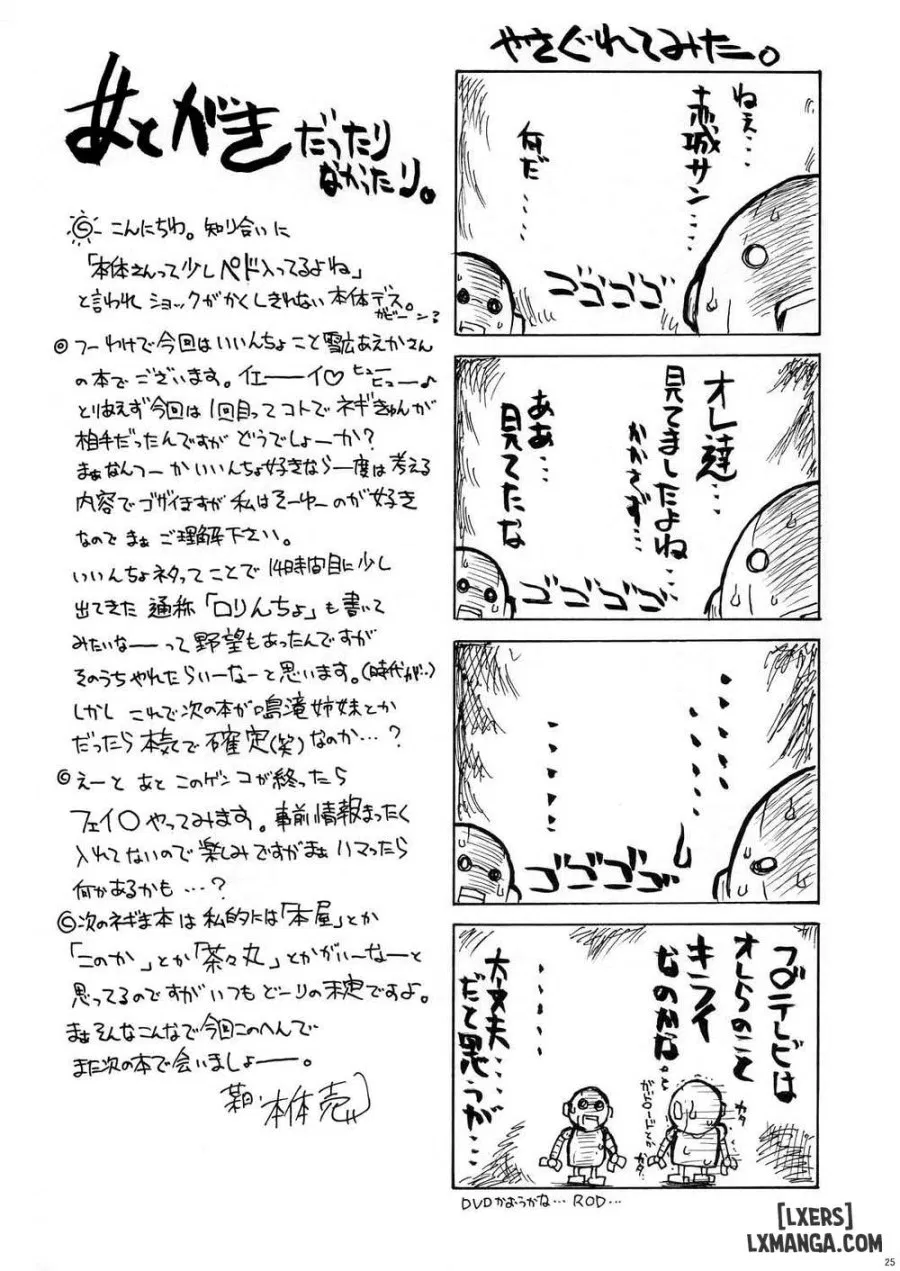 あとがきだったり
なかったり。
こんにちわ。知り合いに
「本体さんって少しペド入ってるよね」
と言われショックがかくしきれない本体デス。
ガビーン?
フーわけで今回はいいんちょこと雪広あえかさん
の本でございます。イエーーイ♡ ヒューヒュー♪
とりあえず今回は1回目ってコトでネギきゅんが
相手だったんですがどうでしょーか?
まぁなんつーかいいんちょ好きなら一度は考える
内容でゴザイますが私はそーゆーのが好き
なのでまぁご理解下さい。
いいんちょネタってことで14時間目に少し
出てきた通称「ロりんちょ」も書いて
みたいなーーって野望もあったんですが
そのうちやれたらいーなーと思います。(時代が…)
しかしこれで次の本が鳴滝姉妹とか
だったら本気で確定(笑)なのか…?
えーと あと このゲンコが終ったら
フェイ〇やってみます。事前情報まったく
入れてないので楽しみですがまぁハマったら
何かあるかも…?
次のネギま本は私的には「本屋」とか
「このか」とか「茶々丸」とかがいーなーと
思ってるのですがいつもどーりの未定ですよ。
まぁそんなこんなで今回このへんで
また次の本で会いましょーー。
本体売
やさぐれてみたー。
ねぇ…
赤城サン…
何だ…
ゴゴゴゴ
オレ達…
見てましたよね…
かかさず…
ああ…
見てたな
ゴゴゴゴ
ゴゴゴゴ
フ〇テレビは
オレらのこと
キライ
なのかな。
と
ガドガードとか
カタ
カタ
大丈夫…
だと思うが…
DVDかおうかな… ROD…
[LXERS]
LXMANGA.COM
25